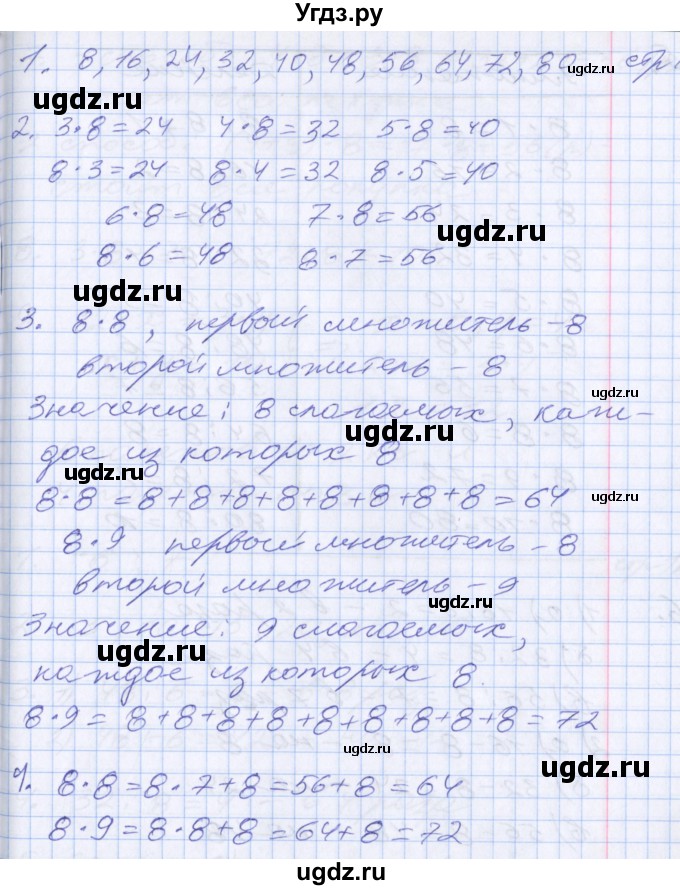 Угдз.ру
1. 8, 16, 24, 32, 40, 48, 56, 64, 72, 80 стр
ugdz.ru
ugdz.ru
2. 3·8=24 4·8=32 5·8=40
ugdz.ru
8·3=24 8·4=32 8·5=40
6·8=48 7·8=56
ugdz.ru
8·6=48 8·7=56
ugdz.ru
3. 8·8, первый множитель – 8
второй множитель – 8
ugdz.ru
Значение: 8 слагаемых, каж-
ugdz.ru
дое из которых 8
ugdz.ru
8·8=8+8+8+8+8+8+8+8=64
ugdz.ru
8·9 первый множитель – 8
второй множитель – 9
ugdz.ru
Значение: 9 слагаемых,
ugdz.ru
каждое из которых 8.
ugdz.ru
8·9=8+8+8+8+8+8+8+8+8=72
ugdz.ru
ugdz.ru
4. 8·8=8·7+8=56+8=64
8·9=8·8+8=64+8=72
ugdz.ru